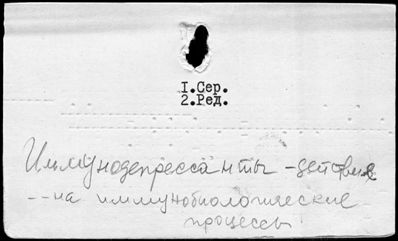 I.Сер.
2.Ред.
Иммунодепрессанты - действие
-- на иммунобиологические
процессы